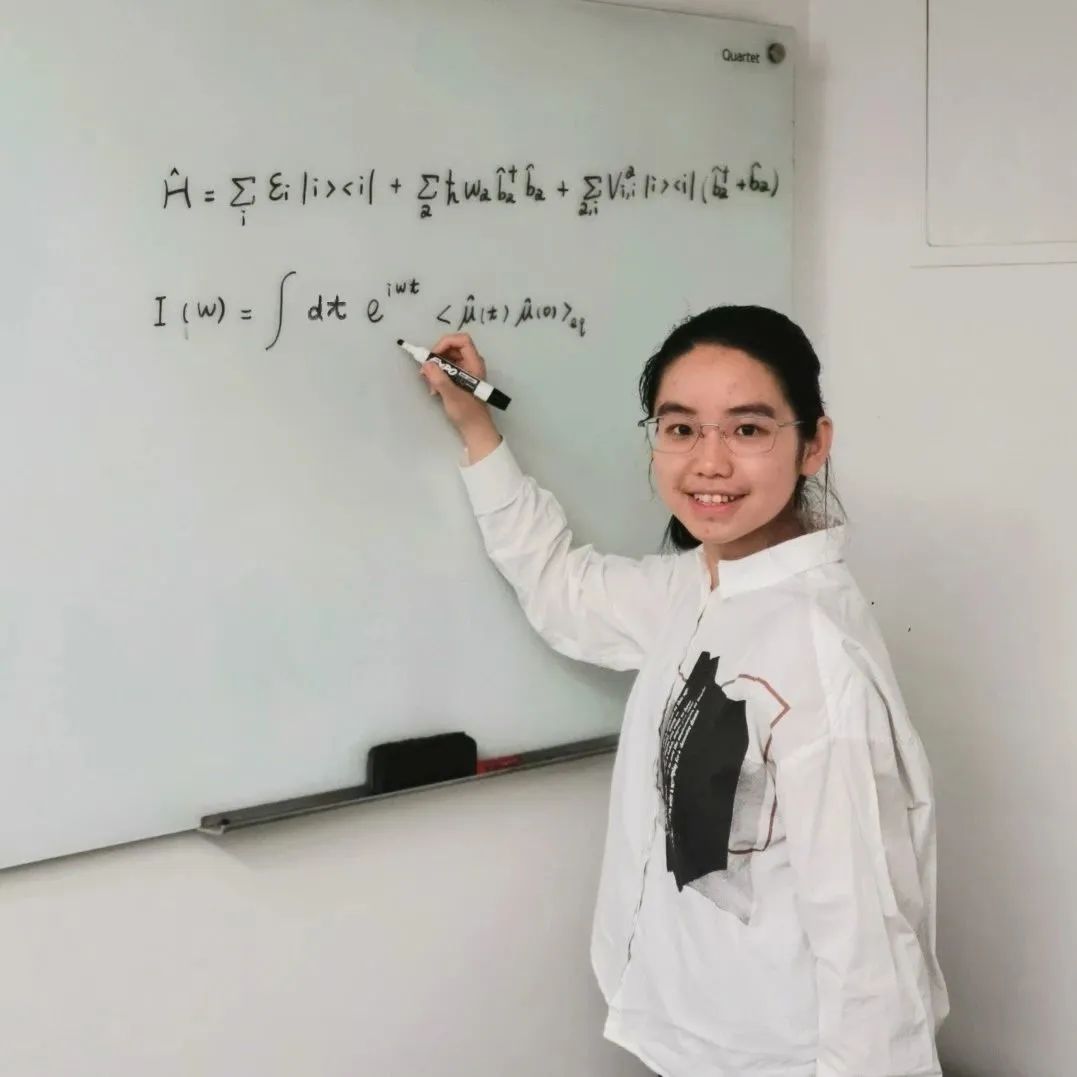 Quartet
Ĥ = ∑_i ε_i |i><i| + ∑_a ħ w_a b̂_a^† b̂_a + ∑_{a,i} V_{i,i}^a |i><i| (b̂_a^† + b̂_a)
I(w) = ∫ dt e^{iwt} <μ̂(t) μ̂(0)>_{eq}
EXPO